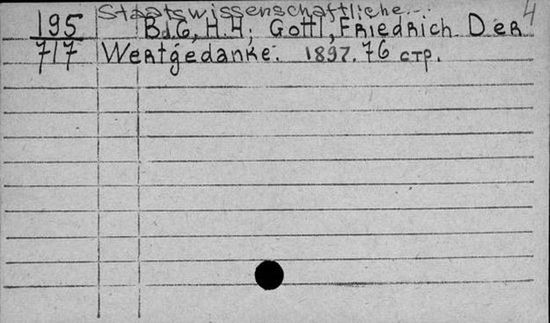 Staatswissenschaftliche... 4
195 Bd.6, H.4; Gottl, Friedrich Der
717 Wertgedanke. 1897. 76 стр.